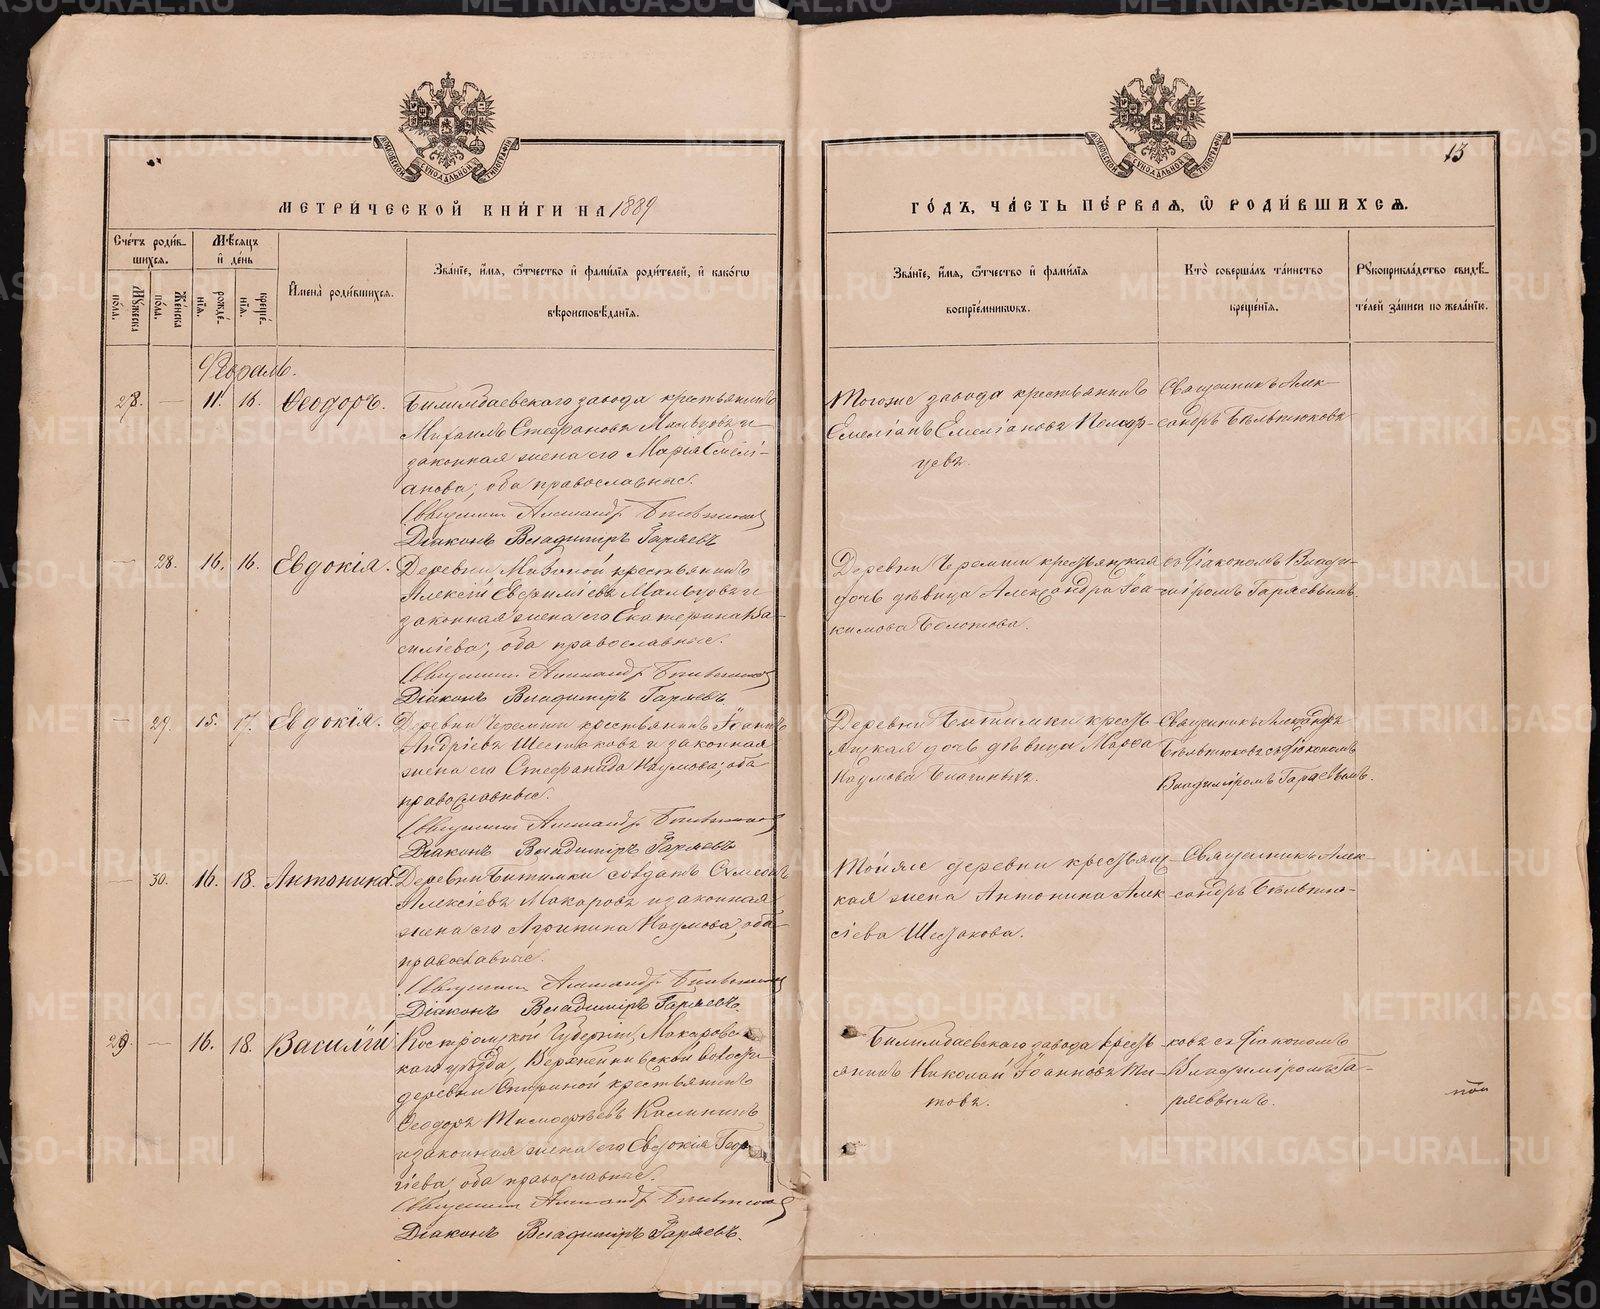 13
МЕТРИ́ЧЕСКОЙ КНИ́ГИ НА 1889
ГО́ДЪ, ЧА́СТЬ ПЕ́РВАЯ, Ѿ РОДИ́ВШИХСЯ.
Сче́тъ роди́вшихся.
Мѣ́сяцъ и҆ де́нь
Мꙋ́жеска по́ла.
Же́нска по́ла.
рожде́нїя.
креще́нїя.
И҆мена̀ роди́вшихся.
Зва́нїе, и҆́мя, ѻ҆́тчество и҆ фами́лїя роди́телей, и҆ како́гѡ
вѣроисповѣ́данїя.
Зва́нїе, и҆́мя, ѻ҆́тчество и҆ фами́лїя
воспрїе́мникѡвъ.
Кто̀ соверша́лъ та́инство
креще́нїя.
Рꙋкоприкла́дство свидѣ́-
телей за́писи по жела́нїю.
Февраль.
28. — 11. 16. Ѳеодоръ.
Билимбаевскаго завода крестьянинъ
Михаилъ Стефановъ Мальцовъ и
законная жена его Марія Емелі-
анова; оба православные.
Священникъ Александръ
Діаконъ Владиміръ Гаряевъ
Тогоже завода крестьянинъ
Емеліанъ Емеліановъ
цевъ.
Священникъ Алек-
сандръ
— 28. 16. 16. Евдокія.
Деревни крестьянинъ
Алексій Евфиміевъ Мальцовъ и
законная жена его Екатерина Ва-
силіева; оба православные.
Священникъ Александръ
Діаконъ Владиміръ Гаряевъ
Деревни Черемши крестьянская
дочь дѣвица Александра Іоа-
кимова Болотова.
съ Діакономъ Влади-
міромъ Гаряевымъ.
— 29. 15. 17. Евдокія.
Деревни Черемши крестьянинъ Іоаннъ
Андріевъ Шестаковъ и законная
жена его Стефанида Наумова; оба
православные.
Священникъ Александръ
Діаконъ Владиміръ Гаряевъ
Деревни Битимки кресть-
янская дочь дѣвица Марѳа
Наумова
Священникъ Александръ
съ діакономъ
Владиміромъ Гаряевымъ.
— 30. 16. 18. Антонина.
Деревни Битимки солдатъ
Алексіевъ Макаровъ и законная
жена его Агрипина Наумова, оба
православные.
Священникъ Александръ
Діаконъ Владиміръ Гаряевъ.
Тойже деревни крестьян-
ская жена Антонина Алек-
сіева Шестакова.
Священникъ Алек-
сандръ
29. — 16. 18. Василій
Костромской Губерніи, Макаровс-
каго уѣзда, волости
деревни крестьянинъ
Ѳеодоръ Тимоѳеевъ Калининъ
и законная жена его Евдокія Геор-
гіева, оба православные.
Священникъ Александръ
Діаконъ Владиміръ Гаряевъ.
Билимбаевскаго завода кресть-
янинъ Николай Іоанновъ Ти-
товъ.
ковъ съ Діакономъ
Владиміромъ Га-
ряевымъ.
METRIKI.GASO-URAL.RU